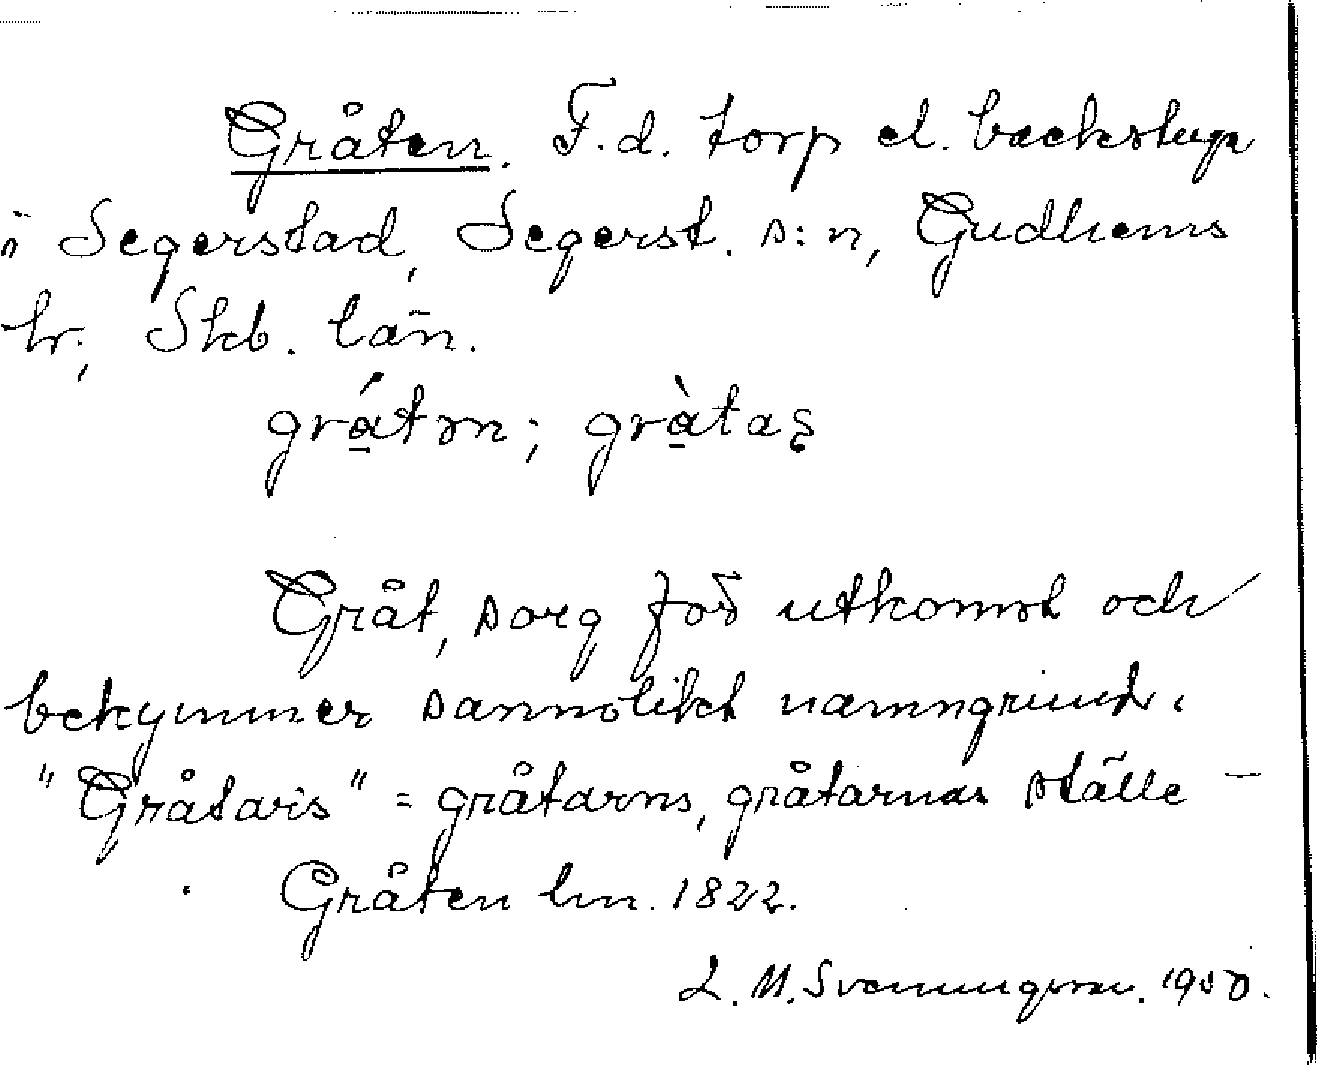 Gråten. F.d. torp el. backstuga
i Segerstad, Segerst. s:n, Gudhems
hr, Skb. län.
grá̱tən; grà̱taʂ
Gråt, sorg för utkomst och
bekymmer sannolikt namngrund.
"Gråtaris" = gråtarns, gråtarnas ställe –
Gråten lm. 1822.
L. M. Svenungsson. 1950.